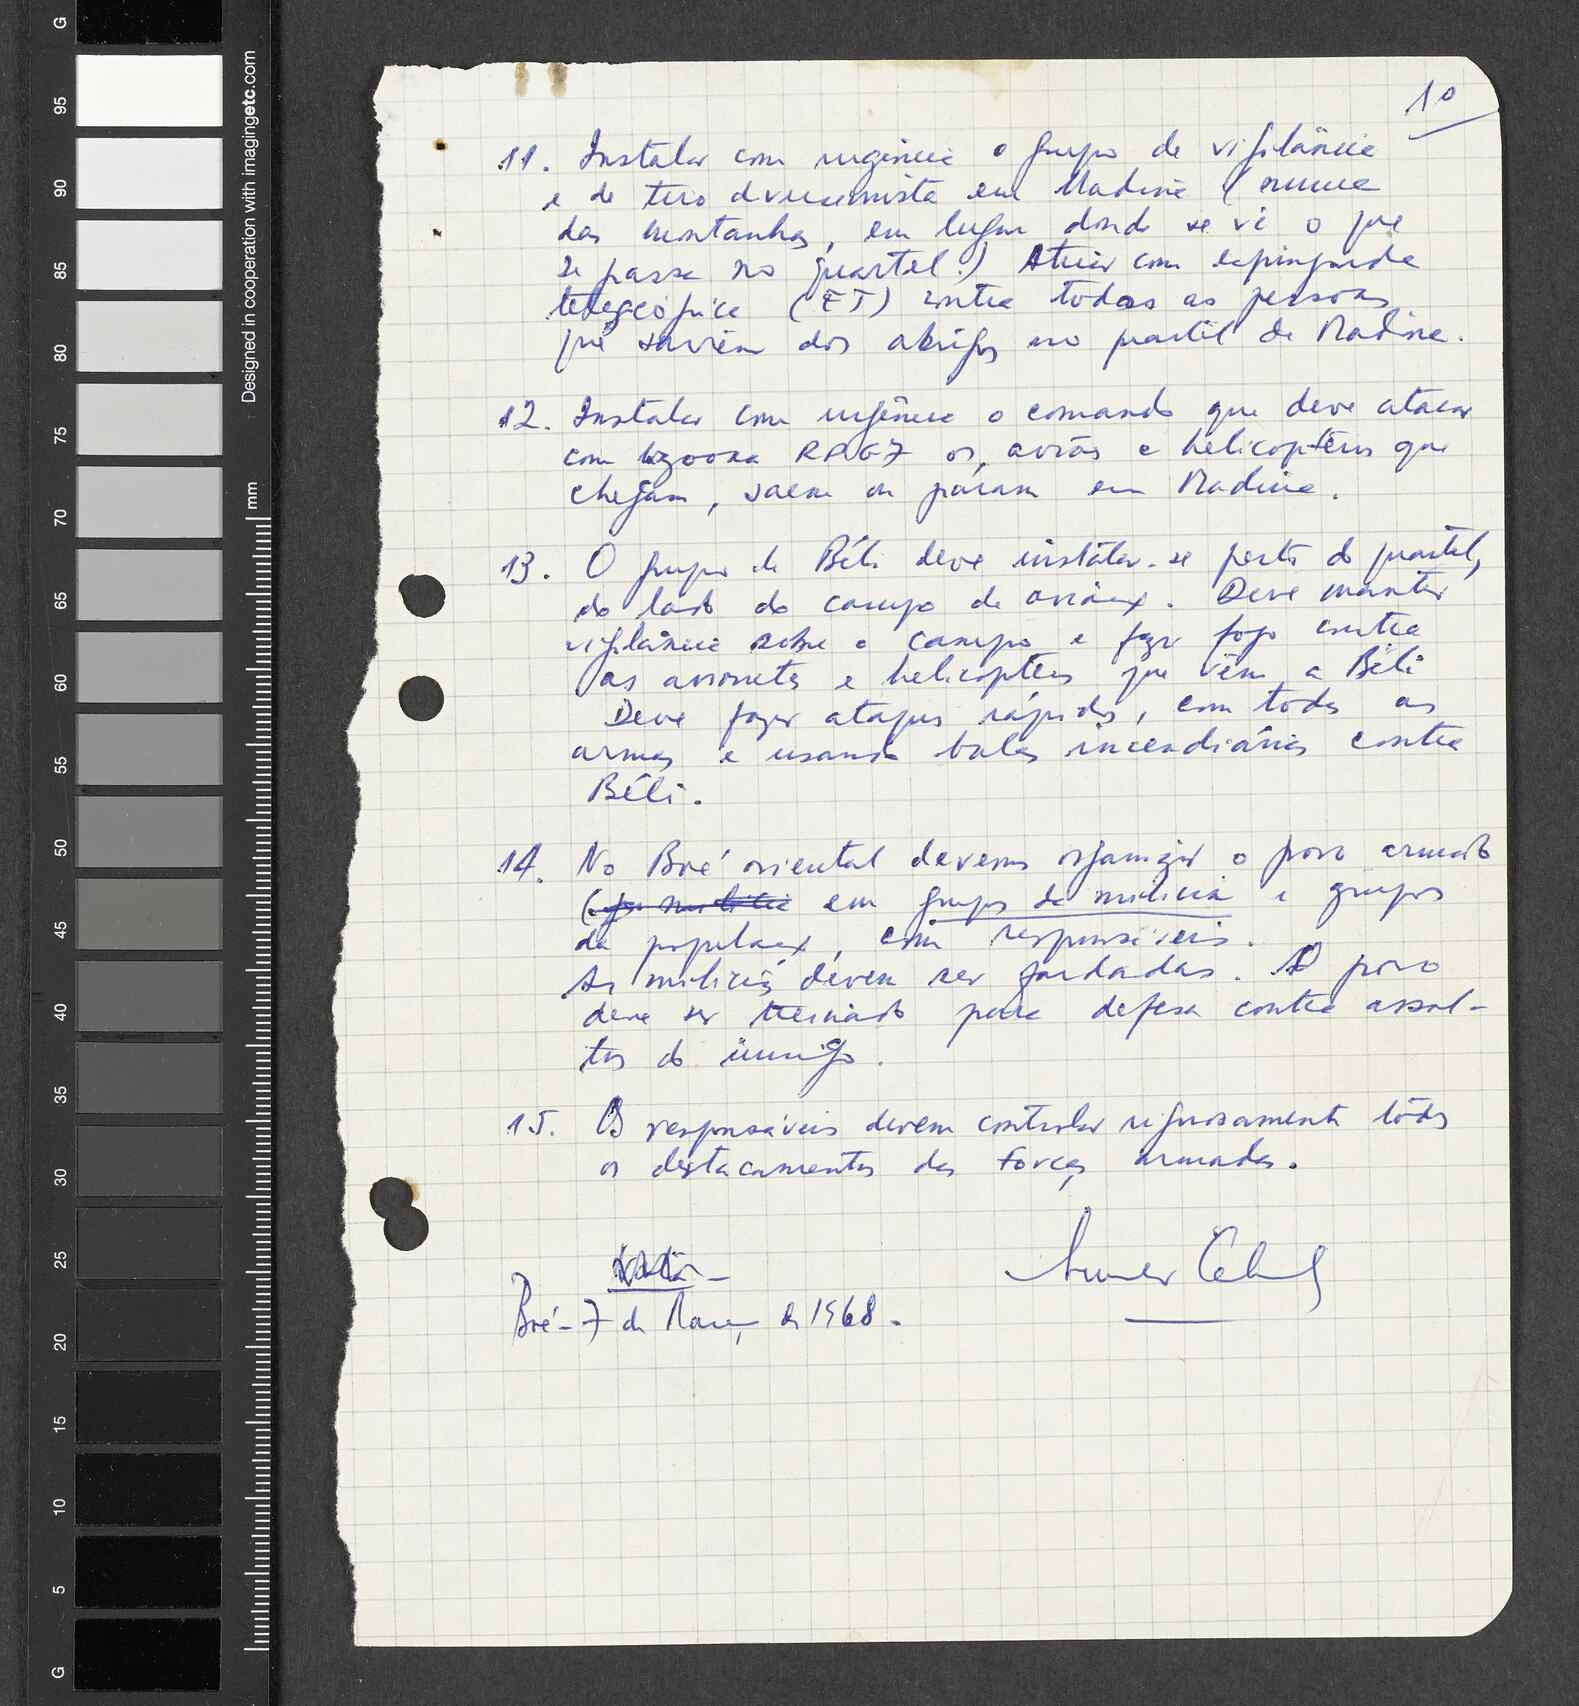 10
11. Instalar com urgência o grupo de vigilância
e de tiro dum cimista em Madina (numa
das montanhas, em lugar donde se vê o que
se passa no quartel.) Atuar com espingarda
telescópica (ET) contra todas as pessoas
que saírem dos abrigos no quartel de Madina.
12. Instalar com urgência o comando que deve atacar
com bazooka RPG7 os aviões e helicopteros que
chegam, saem ou páram em Madina.
13. O grupo de Béli deve instalar-se perto do quartel,
do lado do campo de aviação. Deve manter
vigilância sobre o campo e fazer fogo contra
as avionetas e helicopteros que vêm a Béli
Deve fazer ataques rápidos, com todas as
armas e usando balas incendiárias contra
Béli.
14. No Boé oriental devemos organizar o povo armado
em grupos de milícia e grupos
da população, com responsáveis.
As milícias devem ser fardadas. O povo
deve ser treinado para defesa contra assal-
tos do inimigo.
15. Os responsáveis devem controlar rigorosamente todos
os destacamentos das Forças armadas.
Amilcar Cabral
Boé - 7 de Março de 1968.
Designed in cooperation with imagingetc.com
mm
G
95
90
85
80
75
70
65
60
55
50
45
40
35
30
25
20
15
10
5
G